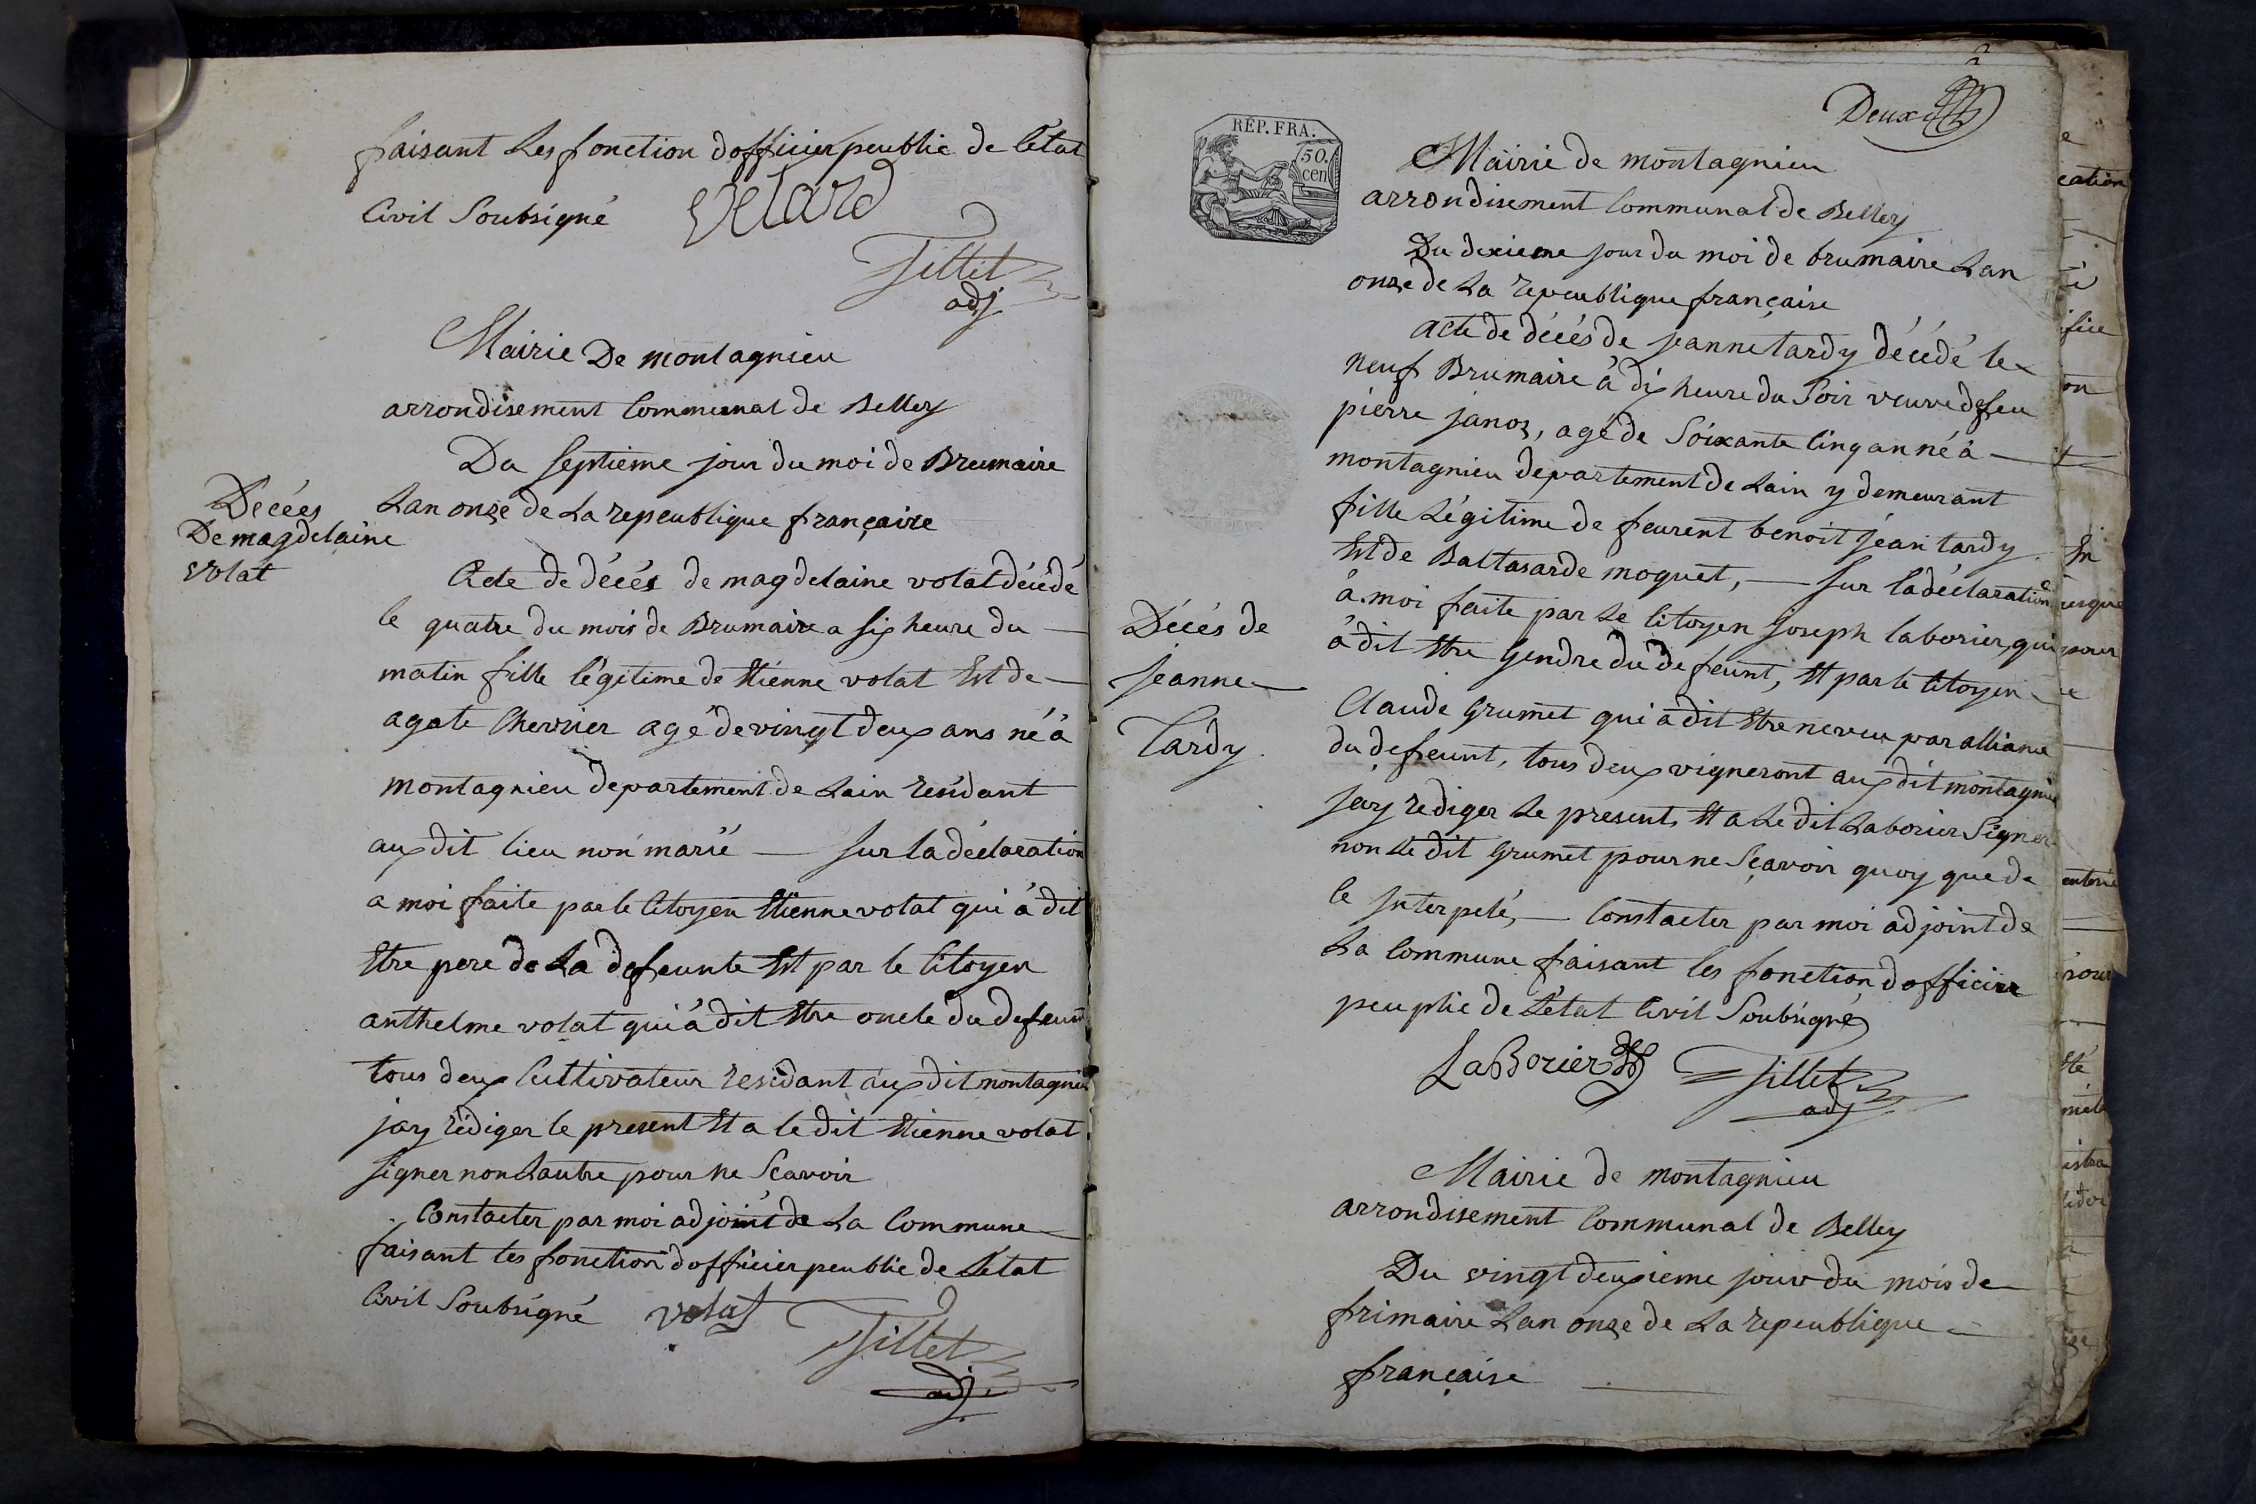 faisant Les fonction dofficier peublic de létat
Civil Soubsigné velard
Tillet
adj
Mairie De montagnieu
arrondisement Communal de Belley
Du Septieme jour du moi de Brumaire
Lan onze de La repeublique françaire
Décées
De magdelaine
volat
Acte de décés de magdelaine volat décédé
le quatre du mois de Brumaire a six heure du —
matin fille légitime de Etienne volat Est de —
agate Chevrier agé de vingt deux ans né à
montagnieu departement de Lain résidant
aux dit lieu non marié — sur la déclaration
a moi faite par le Citoyen Etienne volat qui à dit
Etre pere de La defeunte Et par le Citoyen
anthelme volat qui à dit Etre oncle du defeunt
tous deux Cultivateur residant aux dit montagnieu
jay rédiger le present Et a le dit Etienne volat
signer non Lautre pour ne Scavoir
Constacter par moi adjoint de La Commune
faisant les fonction dofficier peublic de Létat
Civil Soubsigné volat
Tillet
adj.
2
Deux
RÉP. FRA.
50.
cen
Mairie de montagnieu
arrondisement Communal de Belley
Du dixieme jour du moi de brumaire Lan
onze de La repeublique française
acte de décés de jeanne tardy décédé le
neuf Brumaire à dix heure du Soir veuve de feu
pierre janoz, agé de Soixante Cinq an né à —
montagnieu departement de Lain y demeurant
fille Légitime de feurent benoit jean tardy
Est de Baltasarde moquet, — sur la déclaration
à moi faite par Le Citoyen joseph laborier, qui
à dit Etre Gendre du defeunt, Et par le Citoyen
Claude Grumet qui à dit Etre neveu par alliance
du defeunt, tous deux vigneront aux dit montagnieu
jay rediger Le present, Et a Le dit Laborier Signer
non Le dit Grumet pour ne Sçavoir quoy que de
le jnterpelé, — Constacter par moi adjoint de
La Commune faisant les fonction dofficier
peuplic de Létat Civil Soubsigné
Décés de
jeanne
Tardy
LaBorier Tillet
adj
Mairie de montagnieu
arrondisement Communal de Belley
Du vingt deuxieme jour du mois de
frimaire Lan onze de La repeublique
française